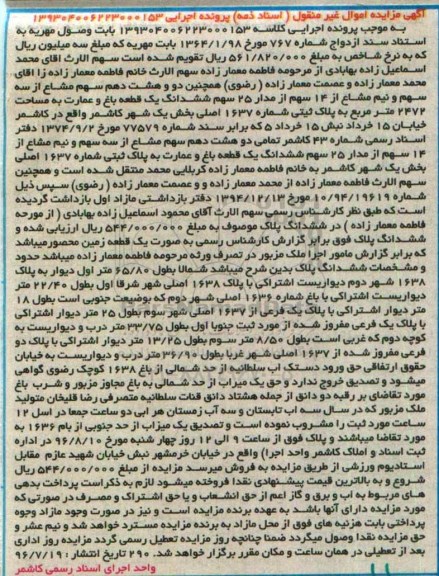 آگهی مزایده اموال غیر منقول ( اسناد ذمه) پرونده اجرایی ۱۳۹۳۰۴۰۰۶۲۲۳۰۰۰۱۵۳
به موجب پرونده اجرایی کلاسه ۱۳۹۳۰۴۰۰۶۲۲۳۰۰۰۱۵۳ بابت وصول مهریه به
استناد سند ازدواج شماره ۷۶۷ مورخ ۱۳۶۴/۱/۹۸ بابت مهریه که مبلغ سه میلیون ریال
که به نرخ شاخص به مبلغ ۵۶۱/۸۲۰/۰۰۰ ریال تقویم شده است سهم الارث آقای محمد
اسماعیل زاده بهابادی از مرحومه فاطمه معمار زاده سهم الارث خانم فاطمه معمار زاده زا اقای
محمد معمار زاده و عصمت معمار زاده ( رضوی) همچنین دو و هشت دهم سهم مشاع از سه
سهم و نیم مشاع از ۱۴ سهم از مدار ۲۵ سهم ششدانگ یک قطعه باغ و عمارت به مساحت
۲۴۷۲ متر مربع به پلاک ثبتی شماره ۱۶۳۷ اصلی بخش یک شهر کاشمر واقع در کاشمر
خیابان ۱۵ خرداد نبش ۱۵ خرداد ۵ که برابر سند شماره ۷۷۵۷۹ مورخ ۱۳۷۴/۹/۲ دفتر
اسناد رسمی شماره ۴۳ کاشمر تمامی دو هشت دهم سهم مشاع از سه سهم و نیم مشاع از
۱۴ سهم از مدار ۲۵ سهم ششدانگ یک قطعه باغ و عمارت به پلاک ثبتی شماره ۱۶۳۷ اصلی
بخش یک شهر کاشمر به خانم فاطمه معمار زاده کربلایی محمد منتقل شده است و همچنین
سهم الارث فاطمه معمار زاده از محمد معمار زاده و و عصمت معمار زاده ( رضوی) سپس ذیل
شماره ۱۰/۹۴/۱۹۶۱۹ مورخ ۱۳۹۴/۱۲/۱۳ دفتر بازداشتی مازاد اول بازداشت گردیده
است که طبق نظر کارشناس رسمی سهم الارث آقای محمود اسماعیل زاده بهابادی ( از مورحه
فاطمه معمار زاده ) در ششدانگ پلاک موصوف به مبلغ ۵۴۴/۰۰۰/۰۰۰ ریال ارزیابی شده و
ششدانگ پلاک فوق برابر گزارش کارشناس رسمی به صورت یک قطعه زمین محصورمیباشد
که برابر گزارش مامور اجرا ملک مزبور در تصرف ورثه مرحومه فاطمه معمار زاده میباشد حدود
و مشخصات ششدانگ پلاک بدین شرح میباشد شمالا بطول ۶۵/۸۰ متر اول دیوار به پلاک
۱۶۳۸ شهر دوم دیواریست اشتراکی با پلاک ۱۶۳۸ اصلی شهر شرقا اول بطول ۲۲/۴۰ متر
دیواریست اشتراکی با باغ شماره ۱۶۳۶ اصلی شهر دوم که بوضیعت جنوبی است بطول ۱۸
متر دیوار اشتراکی با پلاک یک فرعی از ۱۶۳۷ اصلی شهر سوم بطول ۲۵ متر دیوار اشتراکی
با پلاک یک فرعی مفروز شده از مورد ثبت جنوبا اول بطول ۳۳/۷۵ متر درب و دیواریست به
کوچه دوم که غربی است بطول ۸/۵۰ متر سوم بطول ۱۳/۲۵ متر دیوار اشتراکی با پلاک دو
فرعی مفروز شده از ۱۶۳۷ اصلی شهر غربا بطول ۳۶/۹۰ متر درب و دیواریست به خیابان
حقوق ارتفاقی حق ورود دستک اب سلطانیه از حد شمالی از باغ ۱۶۳۸ کوچک رضوی گواهی
میشود و تصدیق خروج ندارد و حق یک میراب از حد شمالی به باغ مجاوز مزبور و شرب باغ
مورد تقاضای بر رقبه دو دانق از جمله هشتاد دانق قنات سلطانیه متصرفی رضا قلیخان متولید
ملک مزبور که در سال سه اب تابستان و سه آب زمستان هر ابی دو ساعت جمعا در اسل ۱۲
ساعت مورد ثبت را مشروب نموده است و تصدیق یک میزاب از حد جنوبی از بام ۱۶۳۶ به
مورد تقاضا میباشند و پلاک فوق از ساعت ۹ الی ۱۲ روز چهار شنبه مورخ ۹۶/۸/۱۰ در اداره
ثبت اسناد و املاک کاشمر واحد اجرا) واقع در خیابان خرمشهر نبش خیابان شهید عازم مقابل
استادیوم ورزشی از طریق مزایده به فروش میرسد مزایده از مبلغ ۵۴۴/۰۰۰/۰۰۰ ریال
شروع و به بالاترین قیمت پیشنهادی نقدا فروخته میشود لازم به ذکراست پرداخت بدهی
های مربوط به اب و برق و گاز اعم از حق انشعاب و یا حق اشتراک و مصرف در صورتی که
مورد مزایده دارای آنها باشد به عهده برنده مزایده است و نیز در صورت وجود مازاد وجوه
پرداختی بابت هزینه های فوق از محل مازاد به برنده مزایده مسترد خواهد شد و نیم عشر و
حق مزایده نقدا وصول میگردد ضمنا چنانچه روز مزایده تعطیل رسمی گردد مزایده روز اداری
بعد از تعطیلی در همان ساعت و مکان مقرر برگزار خواهد شد. ۲۹۰ تاریخ انتشار : ۹۶/۷/۱۹
واحد اجرای اسناد رسمی کاشمر